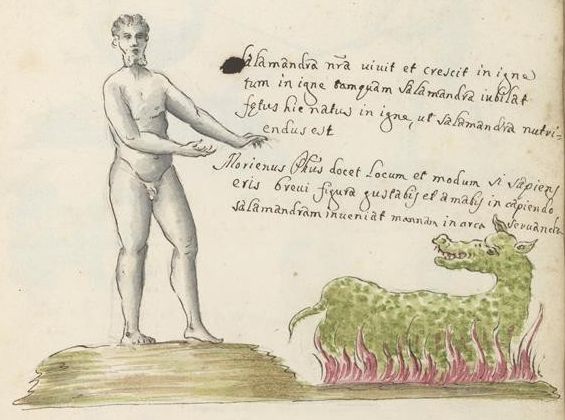 Salamandra nr̃a vivit et crescit in igne
tum in igne tamquam Salamandra iubilat
fętus hic natus in igne, ut Salamandra nutri-
endus est
Morienus Phũs docet Locum et modum si sapiens
eris brevi figura gustabis et amabis in capiendo
Salamandram inveniat mannan in arca Servanda